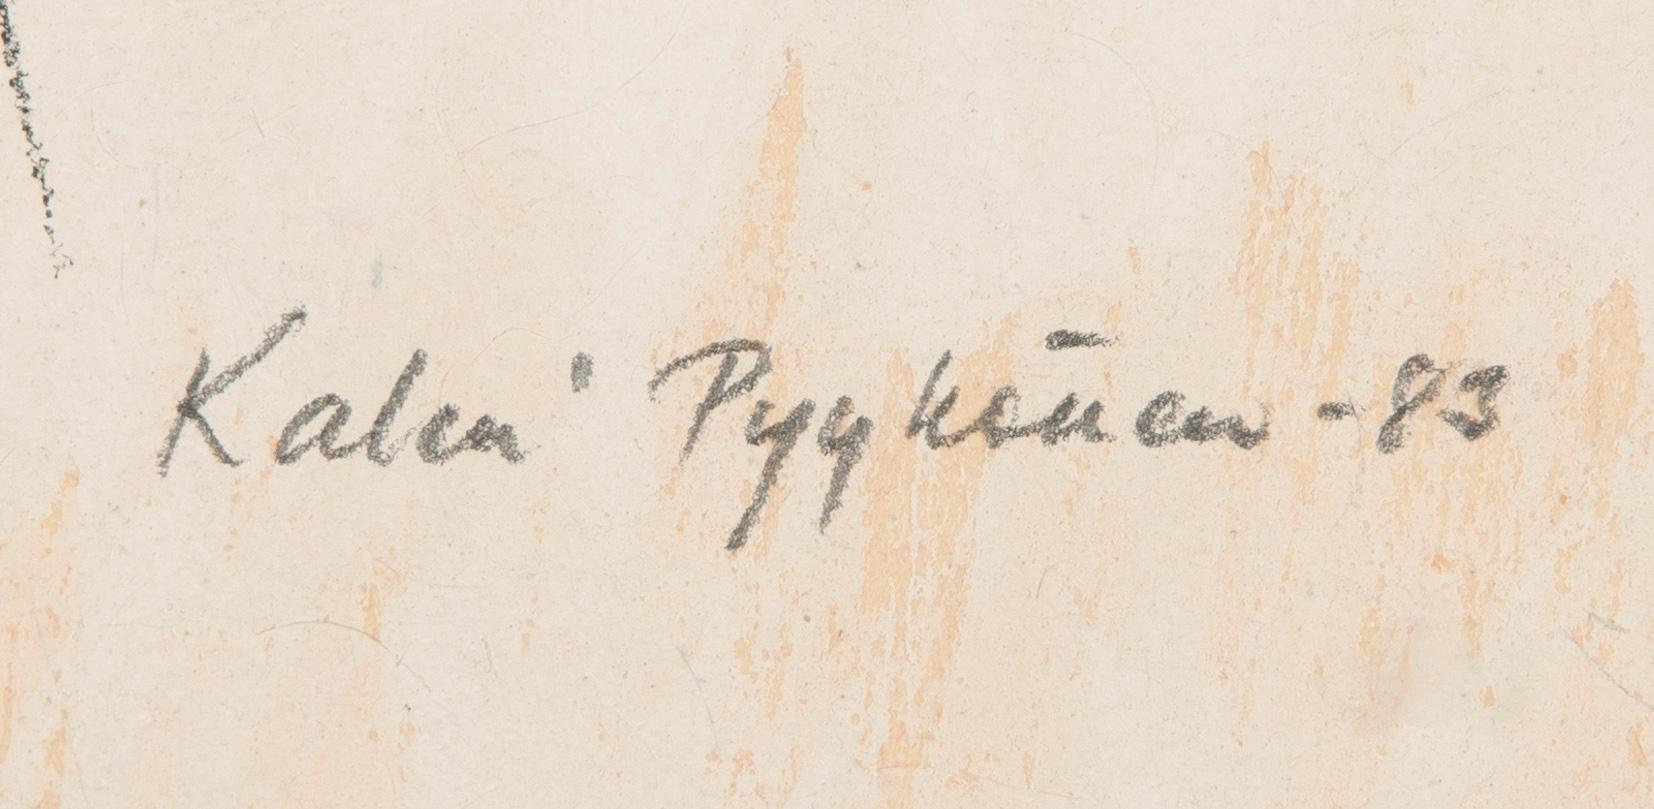 Kalevi Pyykönen -83